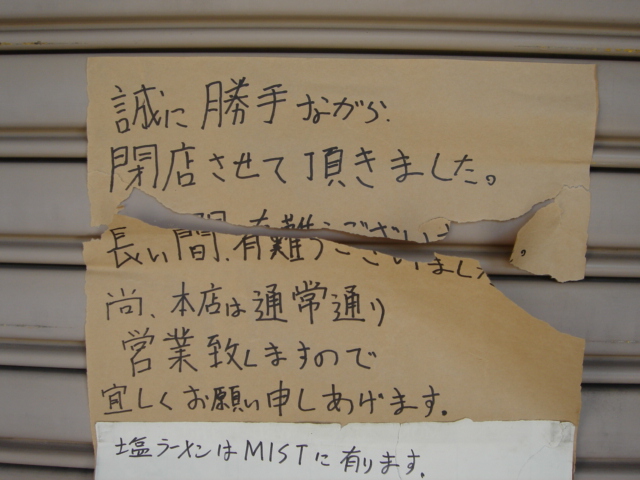 誠に勝手ながら、
閉店させて頂きました。
長い間、有難うございました。
尚、本店は通常通り
営業致しますので
宜しくお願い申しあげます。
塩ラーメンはMISTに有ります。